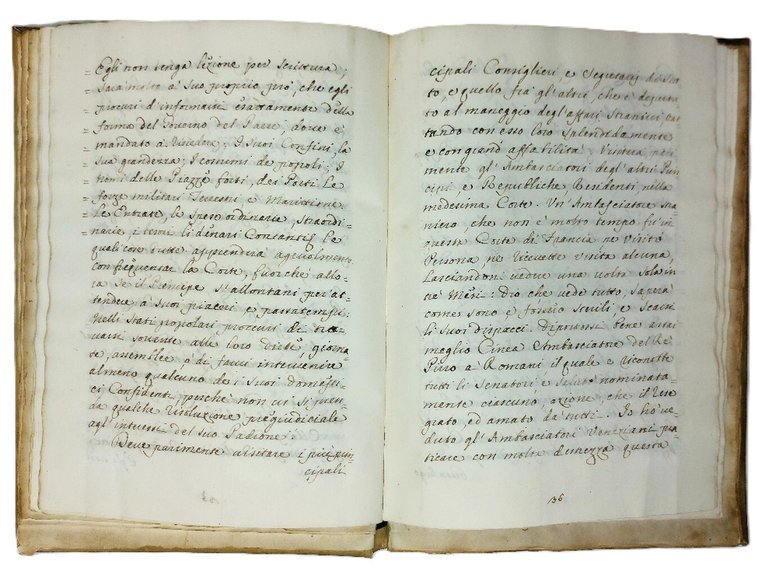 = Egli non tenga lezione per Scrittura,
= Sarà molto à Suo proprio prò, che egli
= procuri d'informarsi esattamente della
= forma del Governo del Paese, dove è
= mandato a risedere, I Suoi Confini, la
= Sua grandezza, I costumi de popoli, I
= nomi delle Piazze forti, dei Porti, Le
= forze militari Terrestri e Maritime
= Le Entrate, le Spese ordinarie, straordi-
= narie, i danari Contanti, Le
quali cose tutte apprenderà agevolmente
con frequentar la Corte, fuorchè allo-
ra Se il Prencipe S'allontani per at-
tendere à Suoi piaceri e passatempi.
Nelli Stati popolari procuri di tro-
varsi sovente alle loro diete, giorna
te, assemblee, o di farvi intervenire
almeno qualcuno dei Suoi domesti-
ci Confidenti, purche non vi Si pren-
da qualche risoluzione pregiudiciale
agl'interessi del Suo Padrone.
Deve parimente visitare i più prin-
cipali
cipali Consiglieri, e Segretarj di Sta-
to, e quello frà gl'altri, che è deputa
to al maneggio degl'affari Stranieri, trat
tando con esso loro Splendidamente
e con grand'affabilità. Visitarà pari-
mente gl'Ambasciatori degl'altri Prin-
cipi, e Republiche Residenti nella
medesima Corte. Un'Ambasciatore Stra-
niero, che non è molto tempo fù in
questa Corte di Francia nè visitò
Persona, nè ricevette visita alcuna,
Lasciandosi vedere una volta Sola in
trè Mesi. Dio che vede tutto, saperà
come sono e furono Sterili, e Scarsi
li Suoi dispacci. Diportossi bene assai
meglio Cinea Ambasciatore del Re
Pirro a Romani il quale e riconobbe
tutti li Senatori e Salutò nominata-
mente ciascuno, azione, che il rese
grato, ed amato da tutti. Io ho ve-
duto gl'Ambasciatori Veneziani pra-
ticare con molta destrezza questa
136